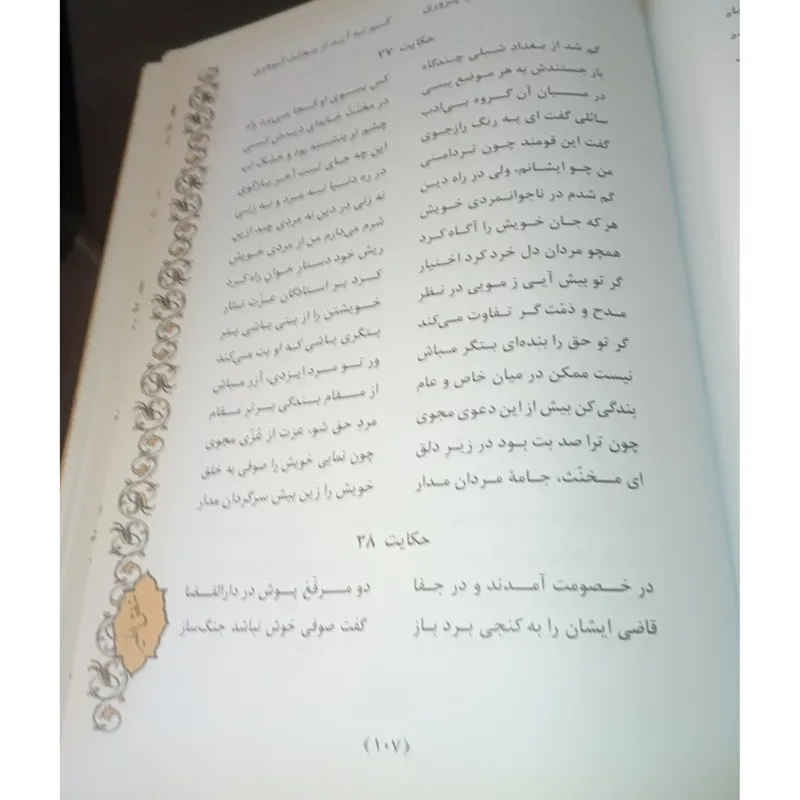 حکایت ۳۷
گم شد از بغداد شبلی چندگاه کس بسوی او کجا می‌برد راه
باز جستندش به هر موضع بسی در مخنث خانه‌ای دیدش کسی
در میان آن گروه بی‌ادب چشم تر بنشسته بود و خشک لب
سائلی گفت ای به رنگ رازجوی این چه جای تست آخر بازگوی
گفت این قومند چون تردامنی در ره دنیا نه مرد و نه زنی
من چو ایشانم، ولی در راه دین نه زنی در دین نه مردی چند ازین
گم شدم در ناجوانمردی خویش شرم می‌دارم من از مردی خویش
هر که جان خویش را آگاه کرد ریش خود دستار خوان راه کرد
همچو مردان دل خرد کرد اختیار کرد بر استادگان عزّت نثار
گر تو بیش آیی ز مویی در نظر خویشتن را از بتی باشی بتر
مدح و ذمّت گر تفاوت می‌کند بتگری باشی که او بت می‌کند
گر تو حق را بنده‌ای بتگر مباش ور تو مرد ایزدی، آزر مباش
نیست ممکن در میان خاص و عام از مقام بندگی برتر مقام
بندگی کن بیش از این دعوی مجوی مرد حق شو، عزت از عُزّی مجوی
چون ترا صد بت بود در زیر دلق چون نمایی خویش را صوفی به خلق
ای مخنّث، جامهٔ مردان مدار خویش را زین بیش سرگردان مدار
حکایت ۳۸
در خصومت آمدند و در جفا دو مرقّع پوش در دارالقضا
قاضی ایشان را به کنجی برد باز گفت صوفی خوش نباشد جنگ‌ساز
منطق الطیر
(۱۰۷)